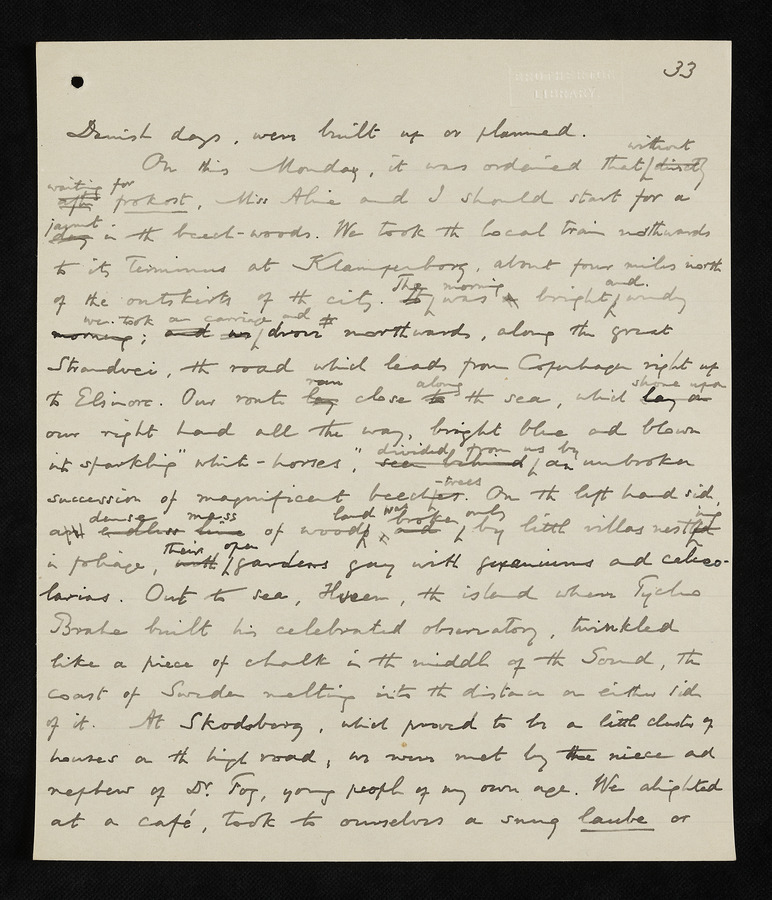 33
BROTHERTON
LIBRARY
Danish days, were built up or planned.
On this Monday, it was ordained that without directly
waiting for after frokost, Miss Aline and I should start for a
jaunt day in the beech-woods. We took the local train northwards
to its terminus at Klampenborg, about four miles north
of the outskirts of the city. The morning It was a bright and windy
morning; we took a carriage and and we drove northwards, along the great
Strandvei, the road which leads from Copenhagen right up
to Elsinore. Our route ran lay close along to the sea, which shone upon lay on
our right hand all the way, bright blue and blown
into sparkling "white-horses," divided from us by seen behind an unbroken
succession of magnificent beech-trees. On the left hand side,
a dense mass endless line of woodland was broken and only by little villas nestling
in foliage, their open with gardens gay with geraniums and calceo-
larias. Out to sea, Hveen, the island where Tycho
Brahe built his celebrated observatory, twinkled
like a piece of chalk in the middle of the Sound, the
coast of Sweden melting into the distance on either side
of it. At Skodsborg, which proved to be a little cluster of
houses on the high road, we were met by the niece and
nephew of Dr. Fog, young people of my own age. We alighted
at a café, took to ourselves a snug laube or